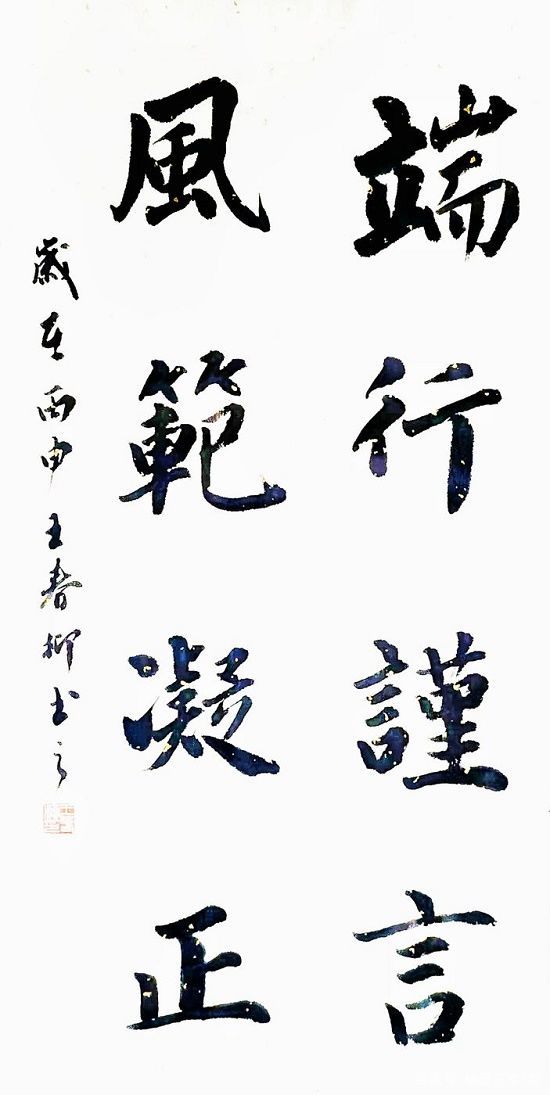 端行謹言
風範凝正
歲在丙申王春柳书之